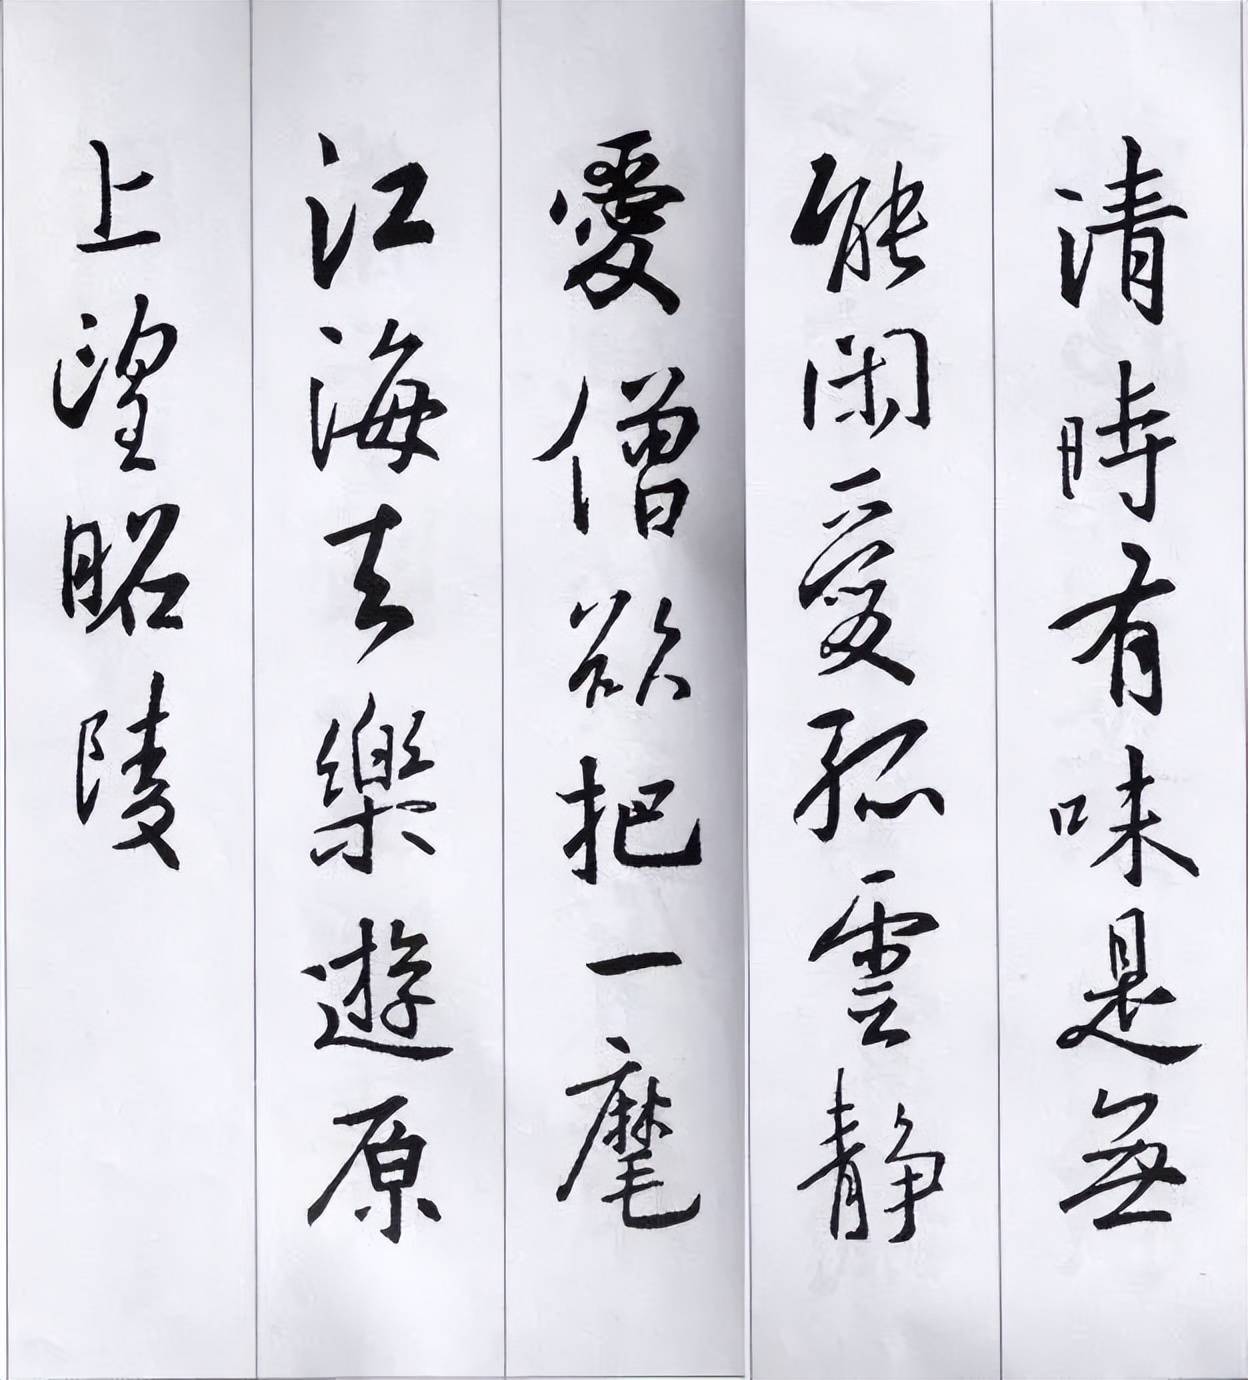 清時有味是無
能闲愛孤雲靜
愛僧欲把一麾
江海去樂遊原
上望昭陵